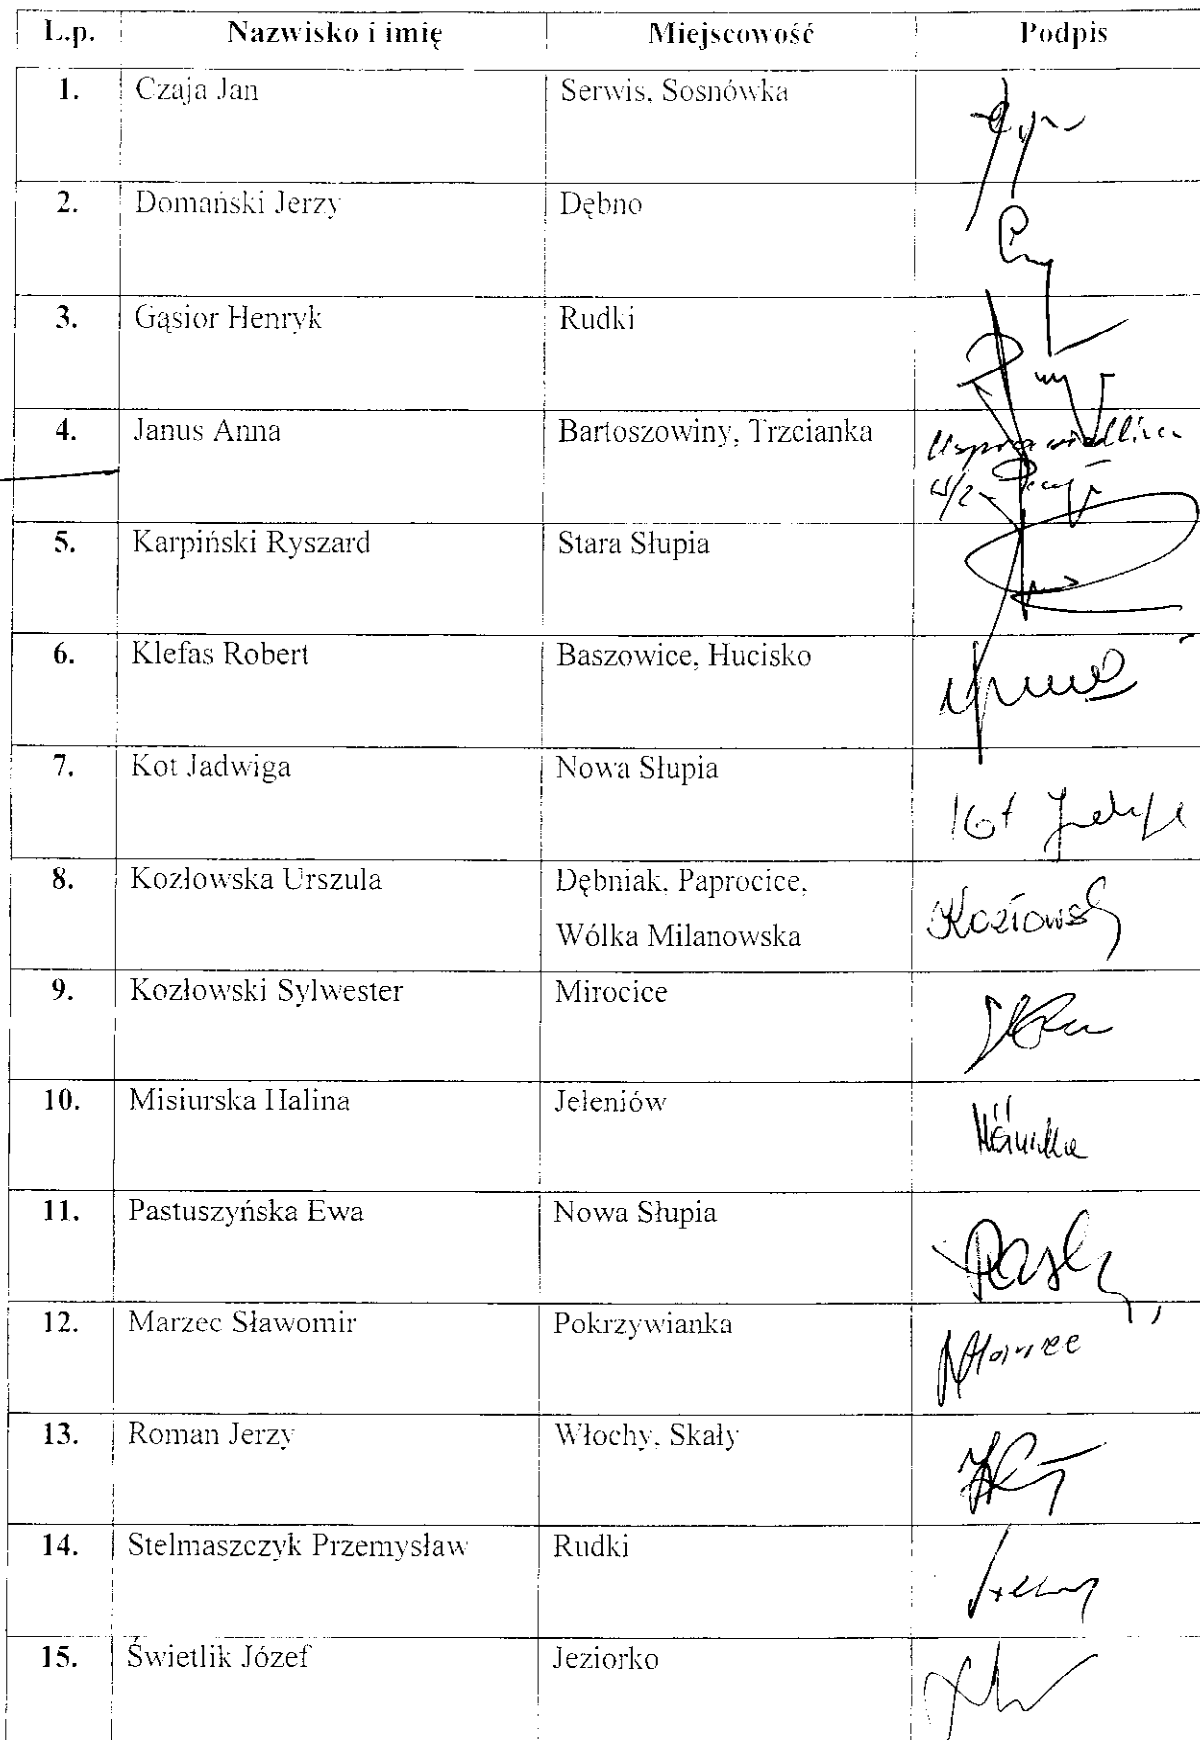 L.p. Nazwisko i imię Miejscowość Podpis
1. Czaja Jan Serwis, Sosnówka
2. Domański Jerzy Dębno
3. Gąsior Henryk Rudki
4. Janus Anna Bartoszowiny, Trzcianka
5. Karpiński Ryszard Stara Słupia
6. Klefas Robert Baszowice, Hucisko
7. Kot Jadwiga Nowa Słupia
Kot
8. Kozłowska Urszula Dębniak, Paprocice,
Wólka Milanowska
9. Kozłowski Sylwester Mirocice
10. Misiurska Halina Jeleniów
11. Pastuszyńska Ewa Nowa Słupia
12. Marzec Sławomir Pokrzywianka
Marzec
13. Roman Jerzy Włochy, Skały
14. Stelmaszczyk Przemysław Rudki
15. Świetlik Józef Jeziorko